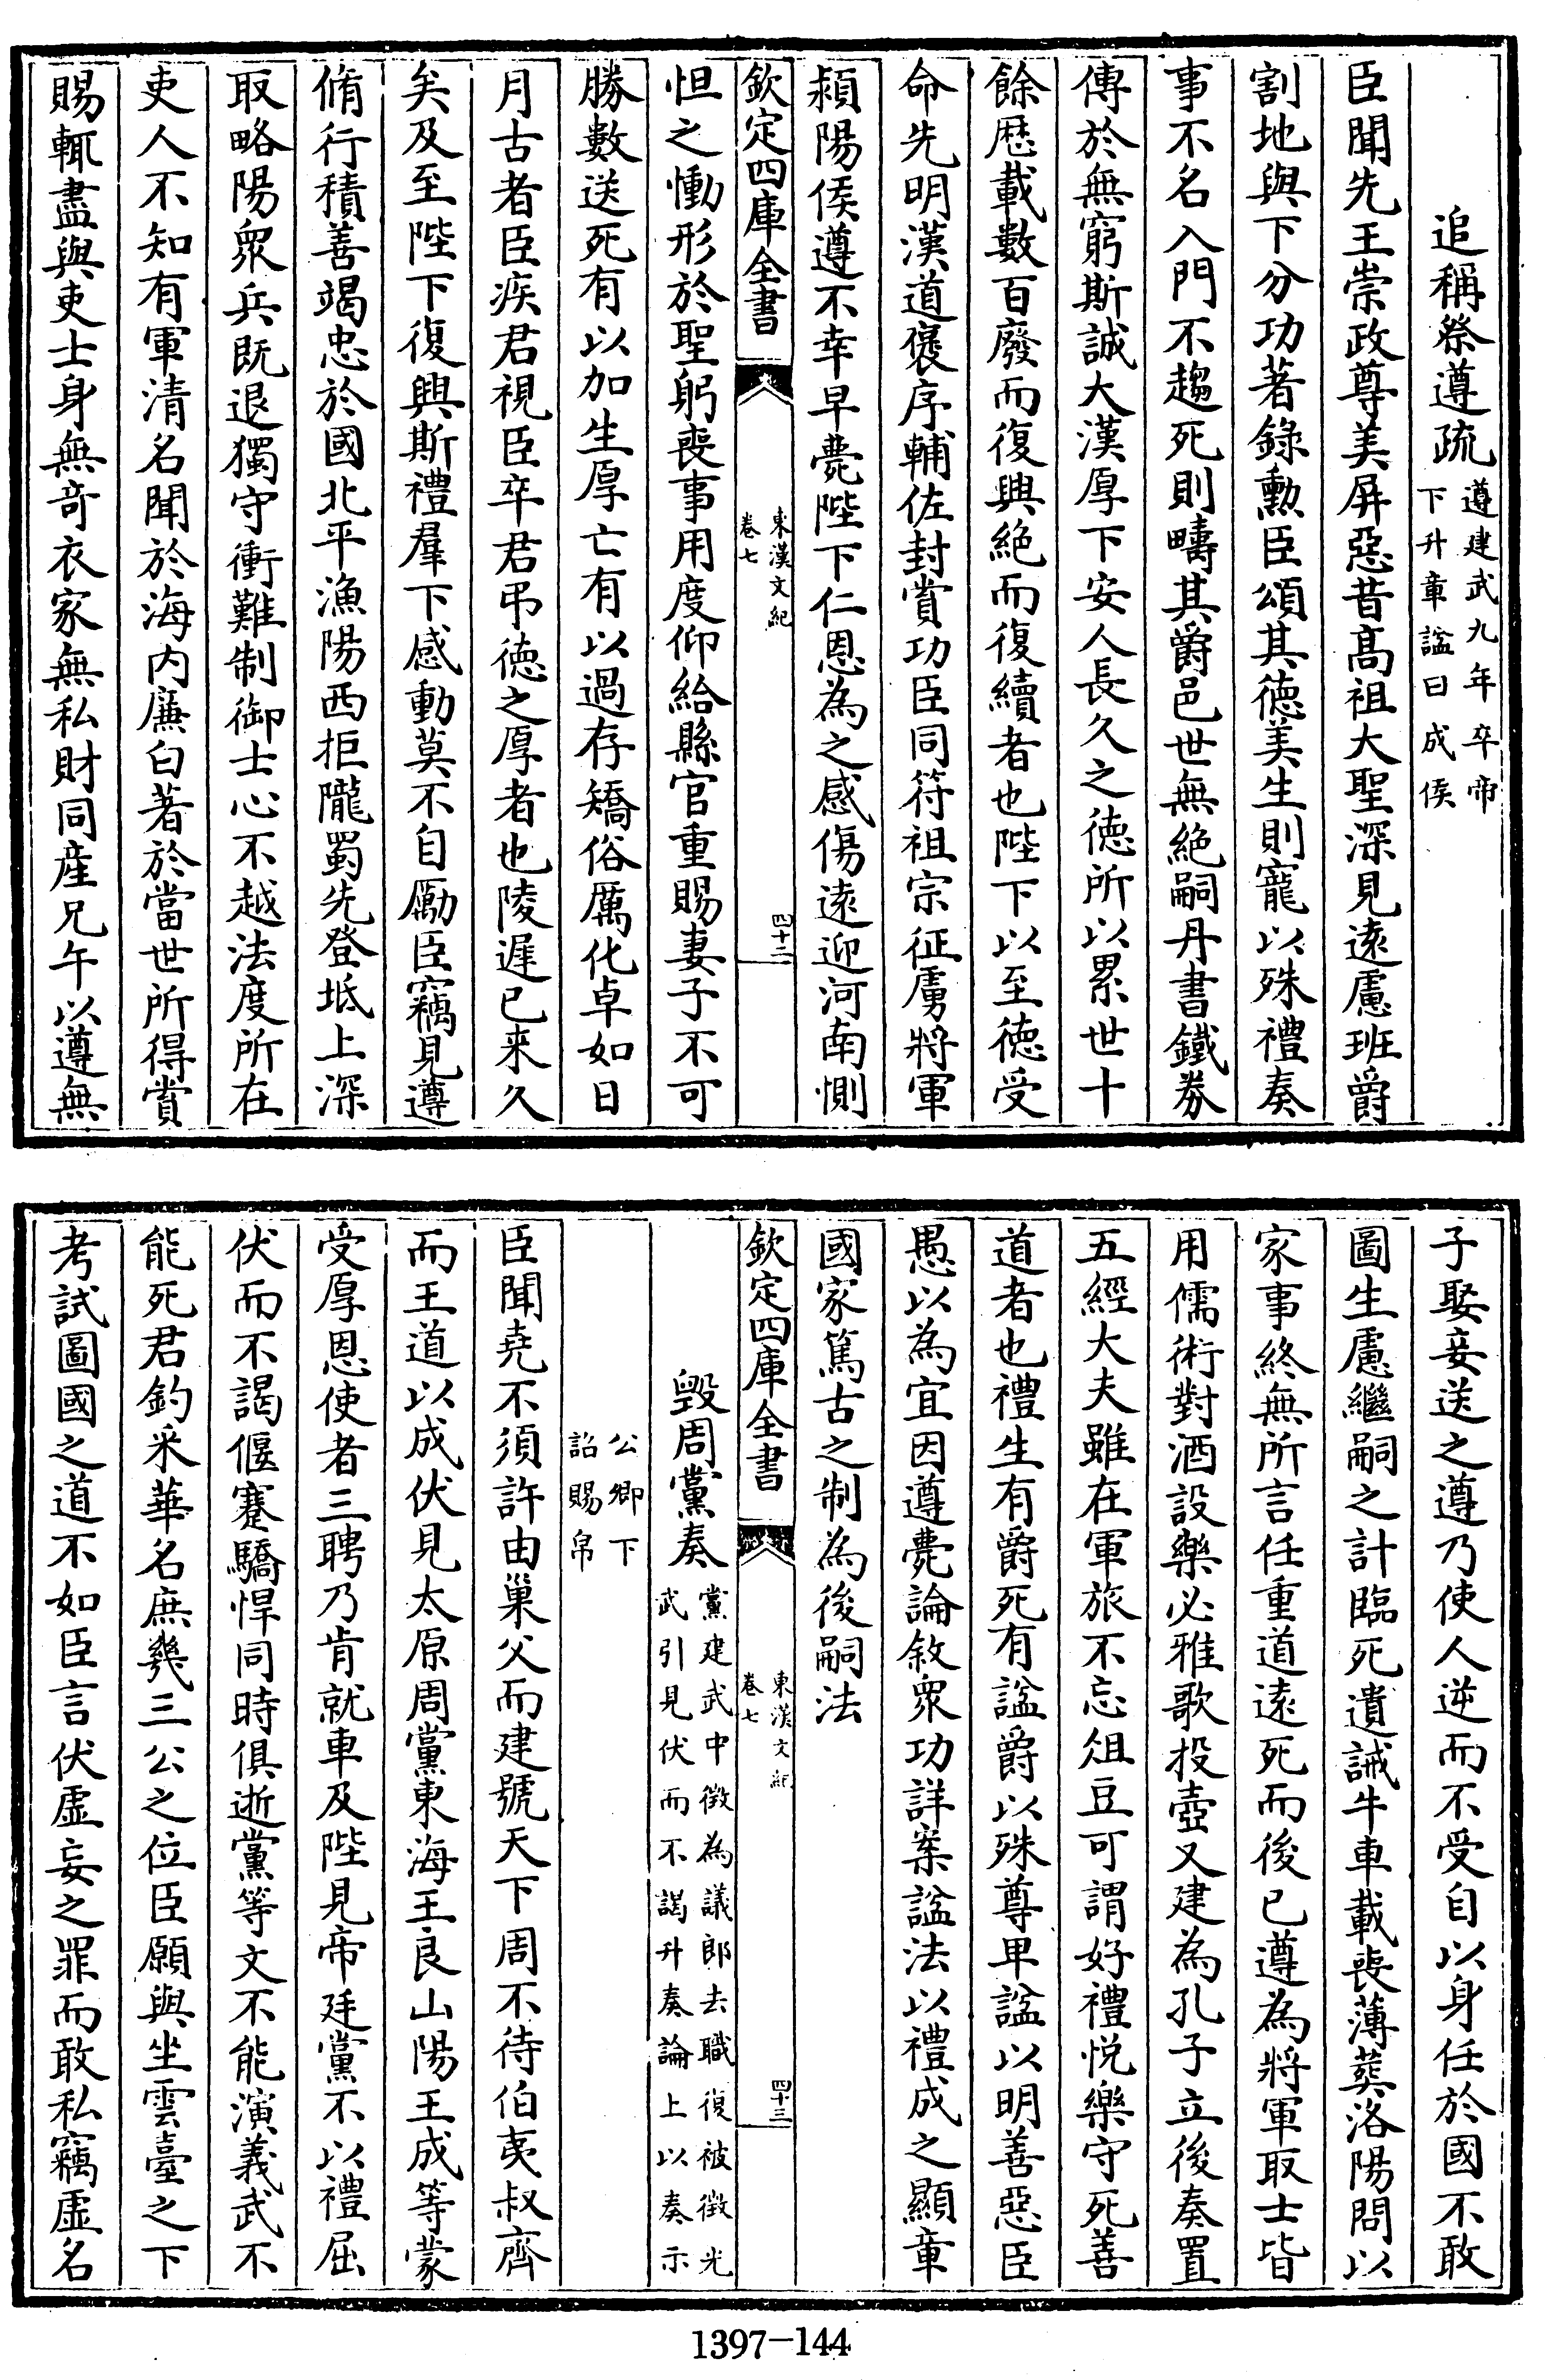 追稱祭遵疏遵建武九年卒帝下升章諡曰成侯
臣聞先王崇政尊美屏惡昔髙祖大聖深見遠慮班爵
割地與下分功著錄勲臣頌其徳美生則寵以殊禮奏
事不名入門不趨死則疇其爵邑世無絶嗣丹書鐵券
傳於無窮斯誠大漢厚下安人長久之徳所以累世十
餘厯載數百廢而復興絶而復續者也陛下以至徳受
命先明漢道襃序輔佐封賞功臣同符祖宗征虜將軍
潁陽侯遵不幸早薨陛下仁恩為之感傷遠迎河南惻
欽定四庫全書
東漢文紀
卷七
四十二
怛之慟形於聖躬喪事用度仰給縣官重賜妻子不可
勝數送死有以加生厚亡有以過存矯俗厲化卓如日
月古者臣疾君視臣卒君弔徳之厚者也陵遲已来久
矣及至陛下復興斯禮羣下感動莫不自勵臣竊見遵
脩行積善竭忠於國北平漁陽西拒隴蜀先登坻上深
取略陽衆兵既退獨守衝難制御士心不越法度所在
吏人不知有軍清名聞於海内廉白著於當世所得賞
賜輒盡與吏士身無竒衣家無私財同産兄午以遵無
子娶妾送之遵乃使人逆而不受自以身任於國不敢
圖生慮繼嗣之計臨死遺誡牛車載喪薄葬洛陽問以
家事終無所言任重道遠死而後已遵為將軍取士皆
用儒術對酒設樂必雅歌投壺又建為孔子立後奏置
五經大夫雖在軍旅不忘俎豆可謂好禮悅樂守死善
道者也禮生有爵死有諡爵以殊尊卑諡以明善惡臣
愚以為宜因遵薨論敘衆功詳案諡法以禮成之顯章
國家篤古之制為後嗣法
欽定四庫全書
東漢文紀
卷七
四十三
毁周黨奏黨建武中徴為議郎去職復被徴光武引見伏而不謁升奏論上以奏示
公卿下詔賜帛
臣聞堯不須許由巢父而建號天下周不待伯夷叔齊
而王道以成伏見太原周黨東海王良山陽王成等蒙
受厚恩使者三聘乃肯就車及陛見帝廷黨不以禮屈
伏而不謁偃蹇驕悍同時俱逝黨等文不能演義武不
能死君釣采華名庶幾三公之位臣願與坐雲臺之下
考試圖國之道不如臣言伏虚妄之罪而敢私竊虚名
1397-144